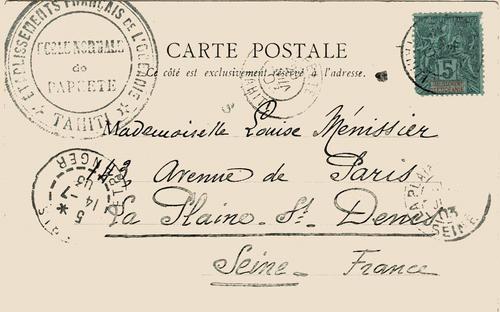 ETABLISSEMENTS FRANÇAIS DE L'OCEANIE
ECOLE NORMALE
de
PAPEETE
TAHITI
CARTE POSTALE
Ce côté est exclusivement réservé à l'adresse.
5
Mademoiselle Louise Ménissier
Avenue de Paris
La Plaine St Denis
Seine France
14 -7
03
5
SEINE